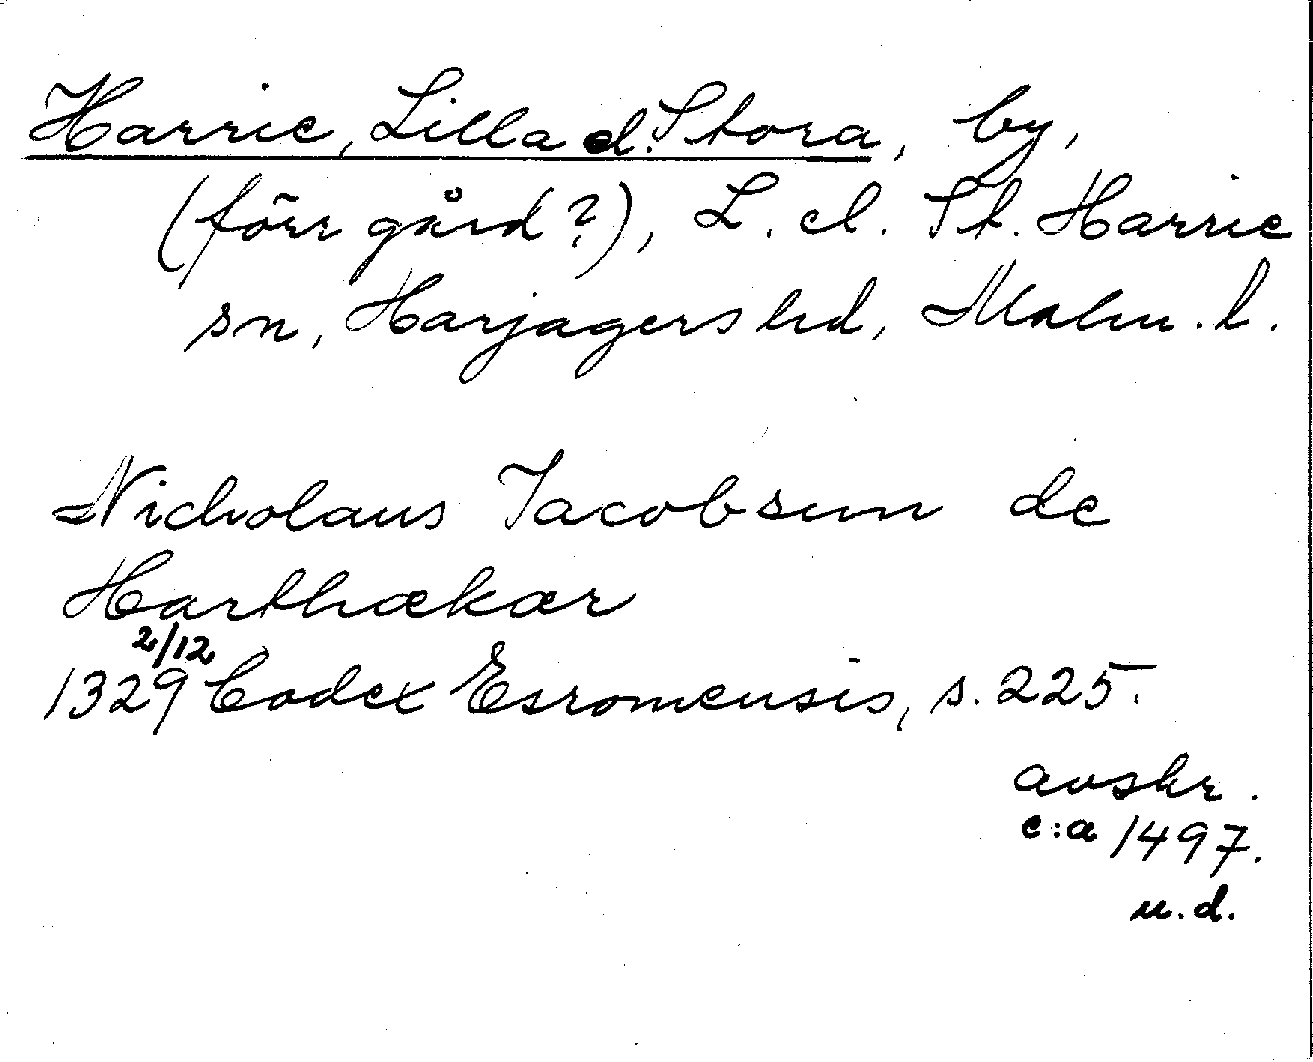 Harrie, Lilla el. Stora, by,
(förr gård?), L. el. St. Harrie
sn, Harjagers hd, Malm. l.
Nicholaus Jacobsun de
Harthækær
2/12
1329 Codex Esromensis, s. 225.
avskr.
c:a 1497.
u.d.